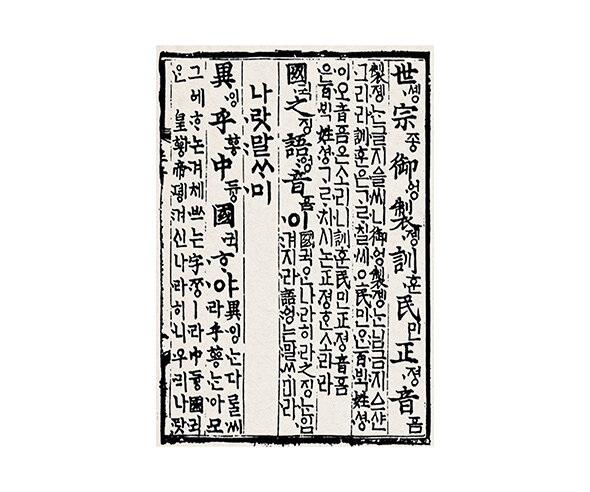 世솅宗종御ᅌᅥᆼ製졩訓훈民민正졍音ᅙᅳᆷ
製졩는글지ᅀᅳᆯ씨니御ᅌᅥᆼ製졩는님금지ᅀᅳ샨
그리라訓훈은ᄀᆞᄅᆞ칠씨오民민ᄋᆞᆫ百ᄇᆡᆨ姓셩
이오音ᅙᅳᆷ은소리니訓훈民민正졍音ᅙᅳᆷ
은百ᄇᆡᆨ姓셩ᄀᆞᄅᆞ치시논正졍ᄒᆞᆫ소리라
國귁之징語ᅌᅥᆼ音ᅙᅳᆷ이
國귁ᄋᆞᆫ나라히라之징는입
겨지라語ᅌᅥᆼ는말ᄊᆞ미라
나랏말ᄊᆞ미
異잉乎ᅘᅩᆼ中듕國귁ᄒᆞ야
異잉는다ᄅᆞᆯ씨
라乎ᅘᅩᆼ는아모
그ᅌᅦᄒᆞ논겨체ᄡᅳ는字ᄍᆞᆼㅣ라中듕國귁
은皇ᅘᅪᆼ帝뎽겨신나라히니우리나랏